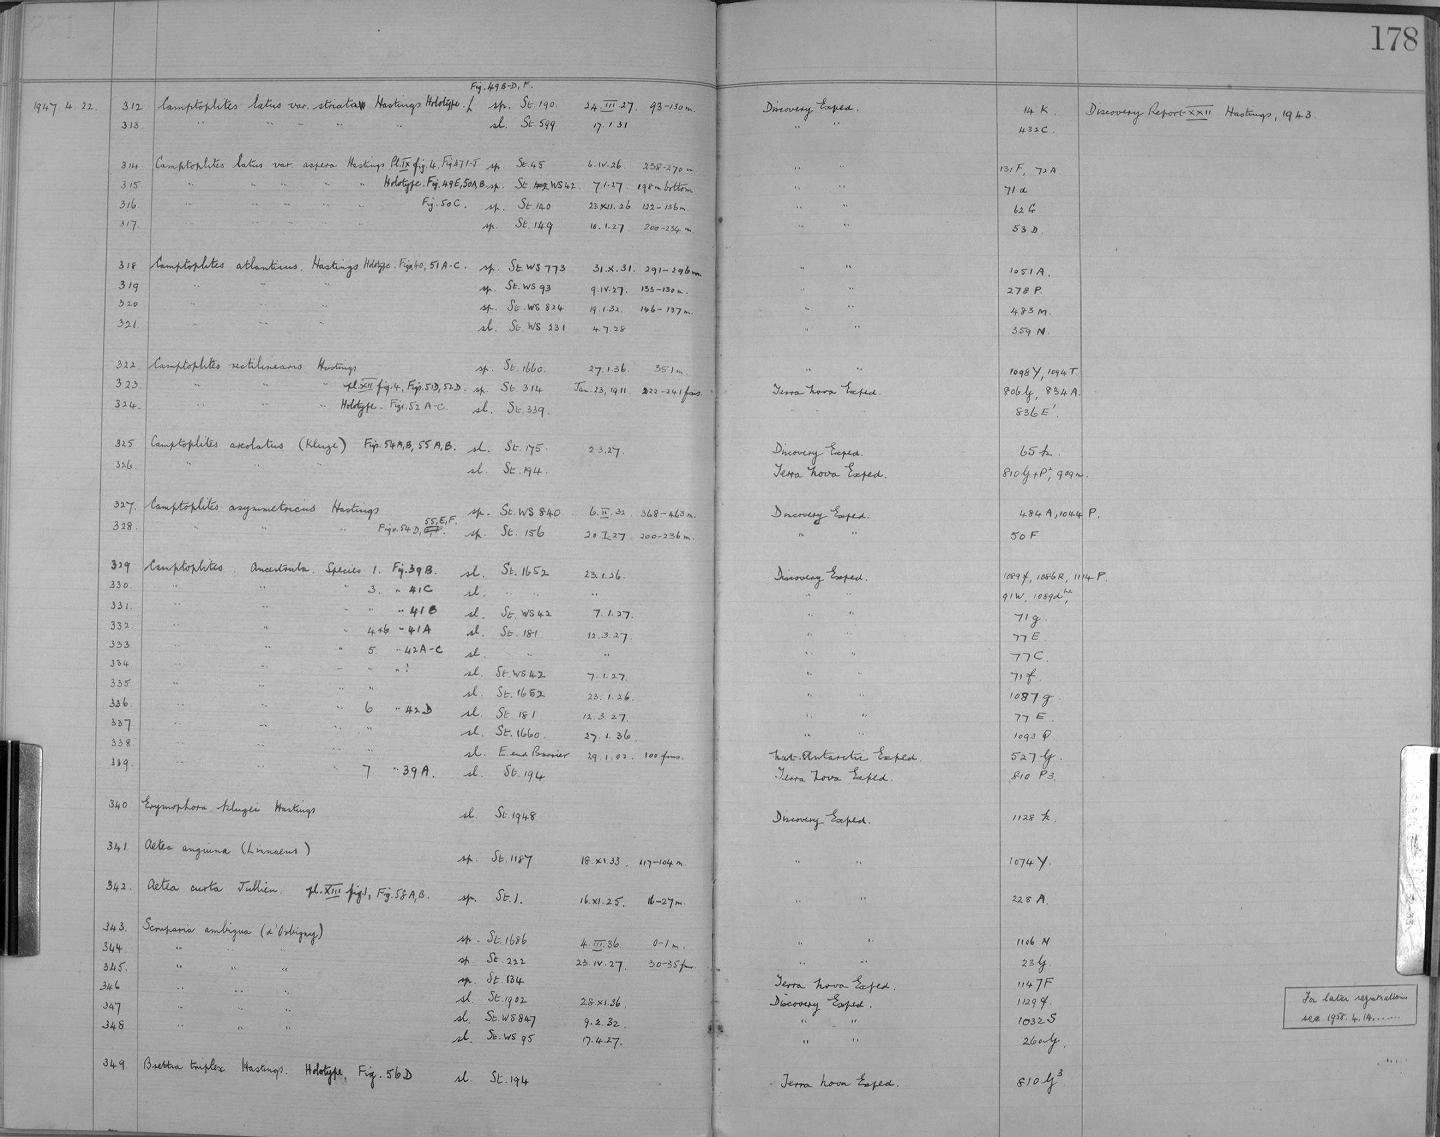 178
Fig. 49B-D, F.
1947. 4. 22. 312 Camptoplites latus var. striata Hastings Holotype. sp. St. 190. 24.III.27. 93-130m. Discovery Exped. 14 K. Discovery Report XXII Hastings, 1943.
313. " " " " sl. St. 599 17.1.31 " " 432C.
314. Camptoplites latus var. aspera Hastings Pl. IX fig. 4, Fig. 47 I-J sp. St. 45 6.IV.26. 238-270m " " 131F, 72A
315. " " " " " Holotype. Fig. 49E, 50A,B. sp. St. WS42. 7.1.27. 198m bottom " " 71 a
316. " " " " " Fig. 50C. sp. St. 140 23.XII.26 122-136m. " " 62 G
317. " " " " sp. St. 149 10.1.27. 200-234 m " " 53 D.
318 Camptoplites atlanticus. Hastings Holotype. Figs 40, 51 A-C. sp. St. WS 773 31.X.31. 291-296m. " " 1051 A.
319 " " " sp. St. WS 93 9.IV.27. 133-130m. " " 278 P.
320 " " " sp. St. WS 824 19.1.32. 146-137m. " " 483 M.
321. " " " sl. St. WS 231 4.7.28 " " 359 N.
322. Camptoplites rectilinearis Hastings sp. St. 1660. 27.1.36. 351 m. " " 1098Y, 1094T
323. " " " pl. XII fig. 4, Figs. 51D, 52D. sp. St. 314 Jan. 23, 1911. 222-241 fms. Terra Nova Exped. 806 G, 834 A.
324. " " Holotype. Figs. 52 A-C. sl. St. 339. " 836 E'.
325 Camptoplites areolatus (Kluge) Figs. 54A,B, 55 A,B. sl. St. 175. 2.3.27. Discovery Exped. 65 h.
326. " " " sl. St. 194. Terra Nova Exped. 810 G+P², 909m.
327. Camptoplites asymmetricus Hastings sp. St. WS 840 6.II.32. 368-463m. Discovery Exped. 484 A, 1044 P.
328. " " " Figs. 54D, 55,E,F. sp. St. 156 20.I.27 200-236m. " " 50 F
329 Camptoplites. Ancestrula. Species 1. Fig. 39B. sl. St. 1652 23.1.26. Discovery Exped. 1089f, 1086R, 1114 P.
330. " " " 3. " 41C sl. " " " " " 91W, 1089d
331. " " " " 41B sl. St. WS42 7.1.27. " " 71g
332 " " " 4+6 " 41A sl. St. 181. 12.3.27. " " 77 E
333 " " " 5 " 42A-C sl. " " " " 77C.
334 " " " " ! sl. St. WS42 7.1.27. " " 71 f.
335. " " " " sl. St. 1652 23.1.26. " " 1087 g
336. " " " 6 " 42D sl. St. 181 12.3.27. " " 77 E.
337 " " " " sl. St. 1660. 27.1.36. " " 1093 Q
338 " " " " sl. E. end Barrier 29.1.02. 100 fms. Nat. Antarctic Exped. 527 G.
339. " " 7 " 39A. sl. St. 194 Terra Nova Exped. 810 P3.
340 Erymophora klugei Hastings sl. St. 1948 Discovery Exped. 1128 h.
341. Aetea anguina (Linnaeus) sp. St. 1187 18.XI.33. 117-104m. " " 1074 Y.
342. Aetea curta Jullien. pl. XIII fig. 1, Fig. 58 A,B. sp. St. 1. 16.XI.25. 16-27m. " " 228 A.
343. Scruparia ambigua (d'Orbigny) sp. St. 1686 4.III.36. 0-1m. " " 1106 N
344. " " " sp. St. 222 23.IV.27. 30-35 fm. " " 23 G.
345. " " " sp. St. 134 Terra Nova Exped. 1147F
346 " " " sl. St. 1902 28.XI.36. Discovery Exped. 1129 f.
347 " " " sl. St. WS847 9.2.32. " " 1032 S
348 " " " sl. St. WS 95 17.4.27. " " 260 G.
For later registrations
see 1958. 4. 14.......
349. Brettia triplex Hastings. Holotype. Fig. 56 D sl. St. 194 Terra Nova Exped. 810 G³